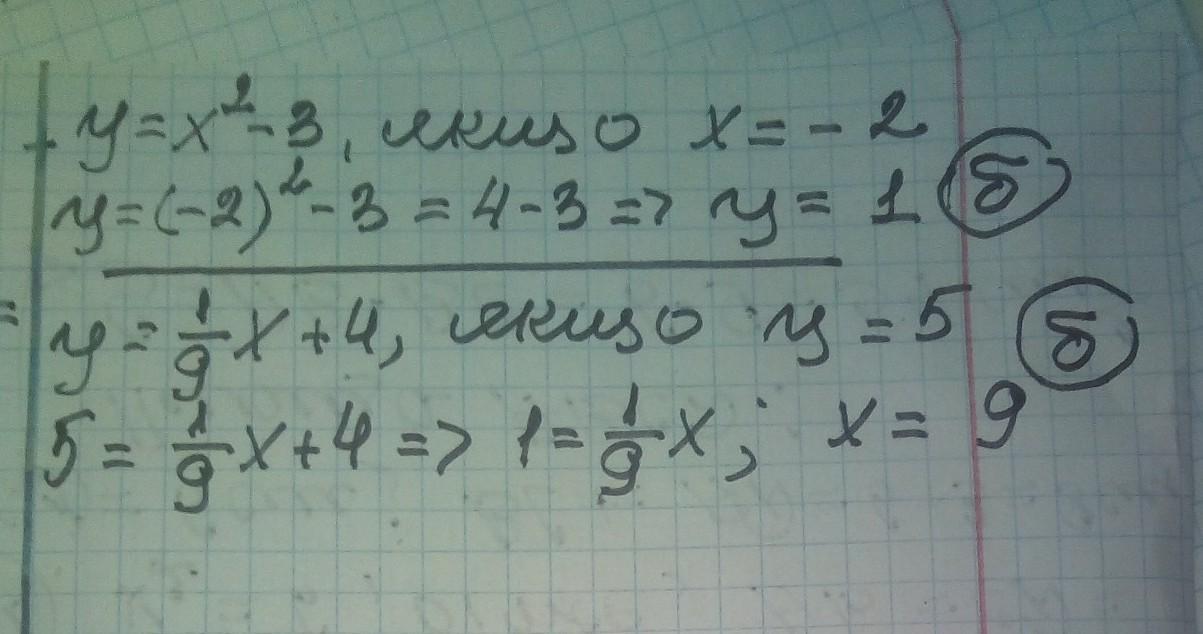 y = x² - 3, якщо x = - 2
y = (-2)² - 3 = 4 - 3 => y = 1 б
y = 1/9 x + 4, якщо y = 5 б
5 = 1/9 x + 4 => 1 = 1/9 x; x = 9